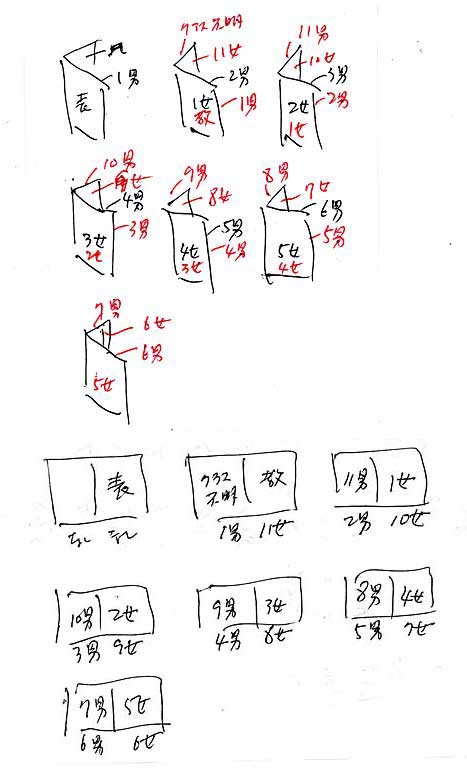 1男
表
クラス不明
11女
2男
1女
教
1男
11男
10女
3男
2女
1女
2男
10男
女
4男
3女
2女
3男
9男
8女
5男
4女
3女
4男
8男
7女
6男
5女
4女
5男
7男
6女
6男
5女
表
なし なし
クラス不明 教
1男 11女
11男 1女
2男 10女
10男 2女
3男 9女
9男 3女
4男 8女
8男 4女
5男 7女
7男 5女
6男 6女